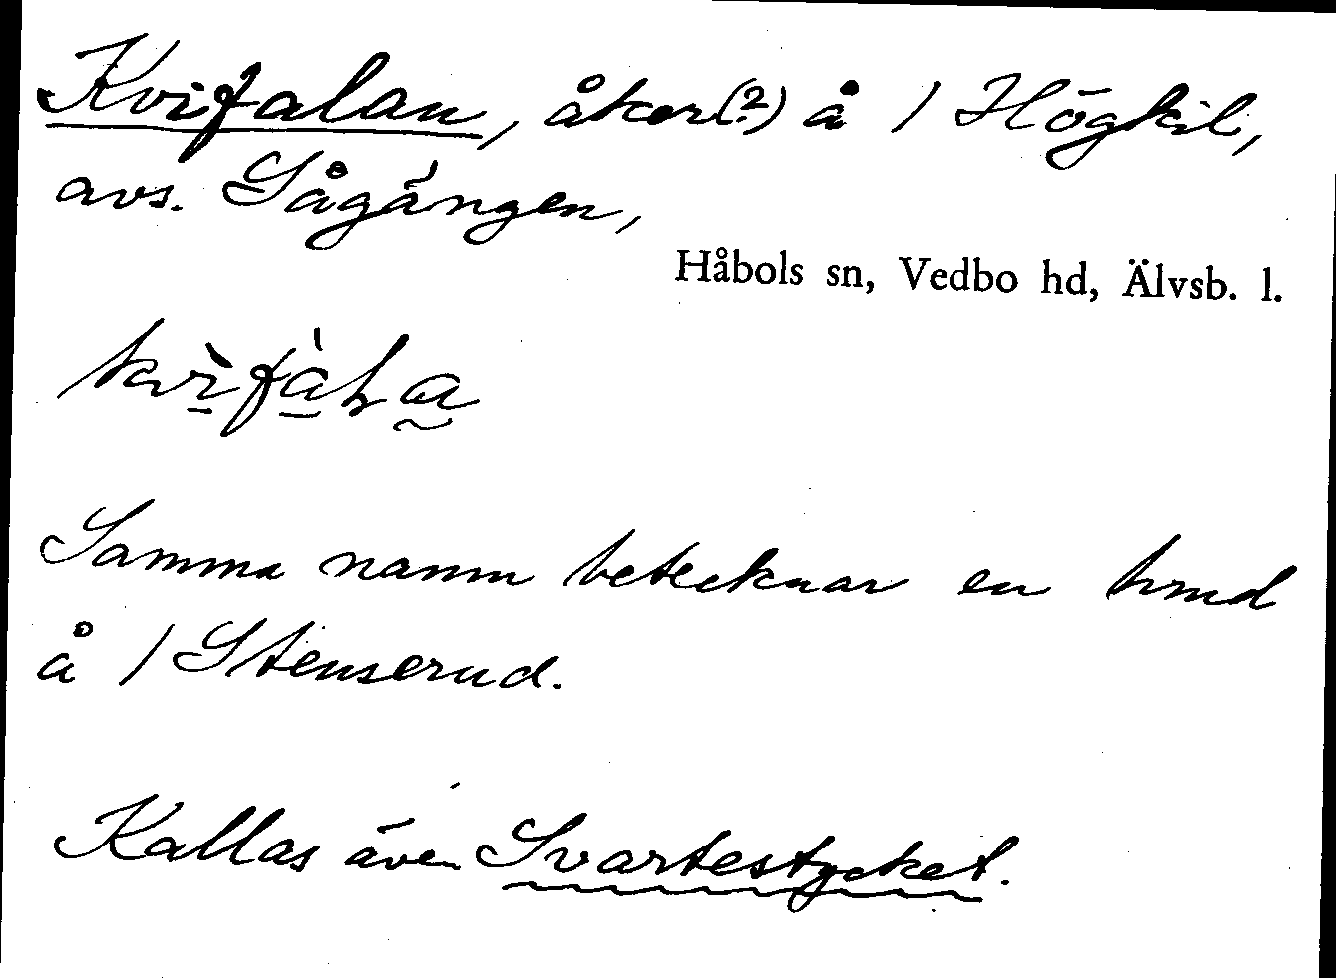 Kvifalan, åker(?) å 1 Högkil,
avs. Sågängen,
Håbols sn, Vedbo hd, Älvsb. l.
Samma namn betecknar en
å 1 Stenserud.
Kallas även Svartestycket.